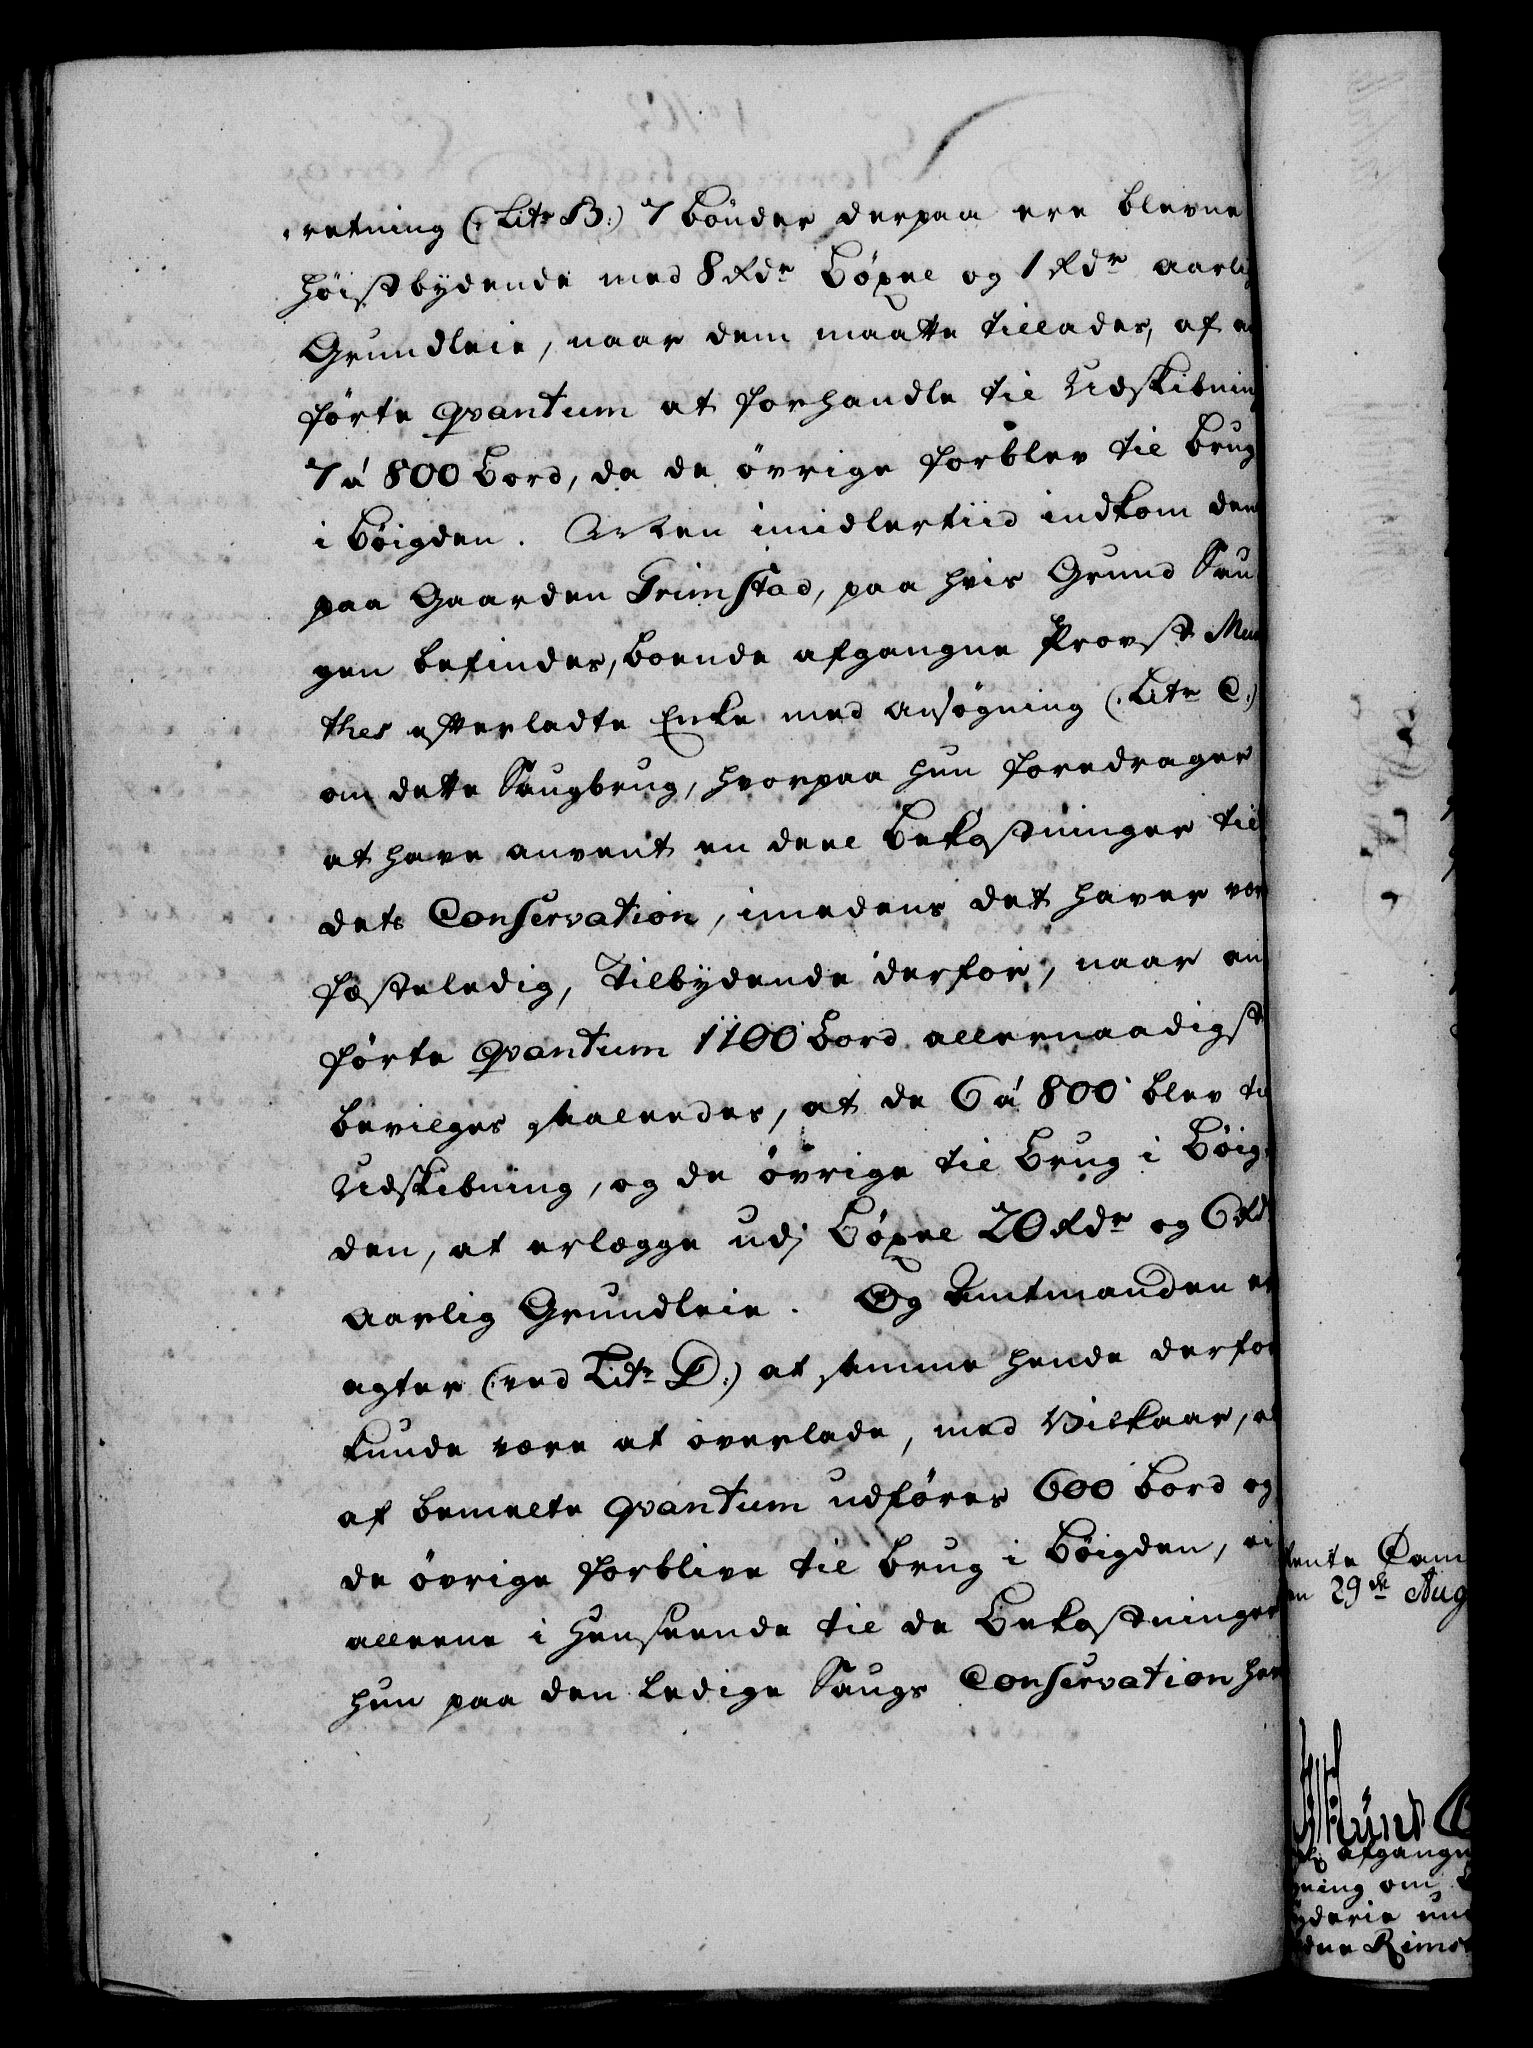 retning (: Litr B:) 7 bönder derpaa ere blevne
høistbydende med 8 Rdr Böxel og 1 Rdr aarli
Grundleie, naar dem maatte tillades, af
førte qvantum at forhandle til Udskibnin
7 á 800 bord, da de övrige forblev til brug
i böigden. Men imidlertiid indkom den
paa Gaarden Grimstad, paa hvis Grund Sau
gen befindes, boende afgangne Provst Mun
thes efterladte Enke med ansøgning (: Litr C:)
om dette Saugbrug, hvorpaa hun foredrager
at have anvent en deel bekostninger til
dets Conservation, imedens det haver vær
fæsteledig, tilbydende derfor, naar an
førte qvantum 1100 bord allernaadigst
bevilges saaledes, at de 6 á 800 blev ti
Udskibning, og de övrige til brug i böig
den, at erlægge udj Böxel 20 Rdr og 6 Rd
aarlig Grundleie. Og Amtmanden er
agter (: ved Litr D:) at samme hende derfor
kunde være at overlade, med Vilkaar, at
af bemelte qvantum udføres 600 bord og
de övrige forblive til brug i böigden, ei
alleene i henseende til de bekostninger
hun paa den ledige Saugs Conservation har
Rente Cam
en 29de Aug
afgangn
ning om
yderie un
den Rims